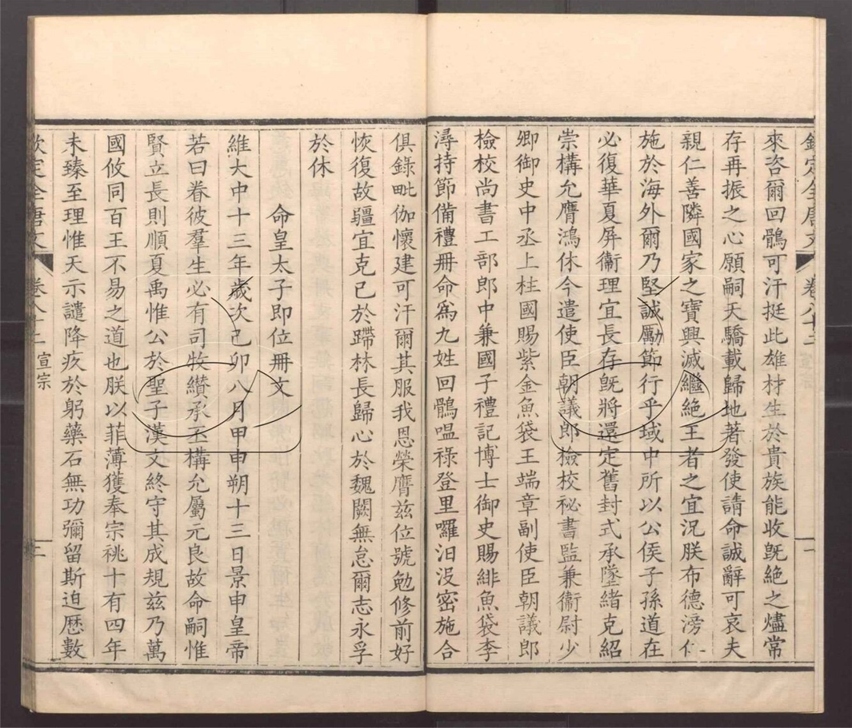 欽定全唐文 卷八十二 一
來咨爾回鶻可汗挺此雄材生於貴族能收旣絶之燼常
存再振之心願嗣天驕載歸地著發使請命誠辭可哀夫
親仁善隣國家之寶興滅繼絶王者之宜況朕布德滂仁
施於海外爾乃堅誠勵節行乎域中所以公侯子孫道在
必復華夏屏衞理宜長存旣將還定舊封式承墜緒克紹
崇構允膺鴻休今遣使臣朝議郎檢校祕書監兼衞尉少
卿御史中丞上柱國賜紫金魚袋王端章副使臣朝議郎
檢校尚書工部郎中兼國子禮記博士御史賜緋魚袋李
潯持節備禮冊命爲九姓回鶻嗢祿登里囉汨沒密施合
俱錄毗伽懷建可汗爾其服我恩榮膺兹位號勉修前好
恢復故疆宜克已於蹛林長歸心於魏闕無怠爾志永孚
於休
命皇太子即位冊文
維大中十三年歲次己卯八月甲申朔十三日景申皇帝
若曰眷彼羣生必有司牧纘承丕構允屬元良故命嗣惟
賢立長則順夏禹惟公於聖子漢文終守其成規兹乃萬
國攸同百王不易之道也朕以菲薄獲奉宗祧十有四年
未臻至理惟天示譴降疚於躬藥石無功彌留斯迫歴數
欽定全唐文 卷八十二 宣宗 二